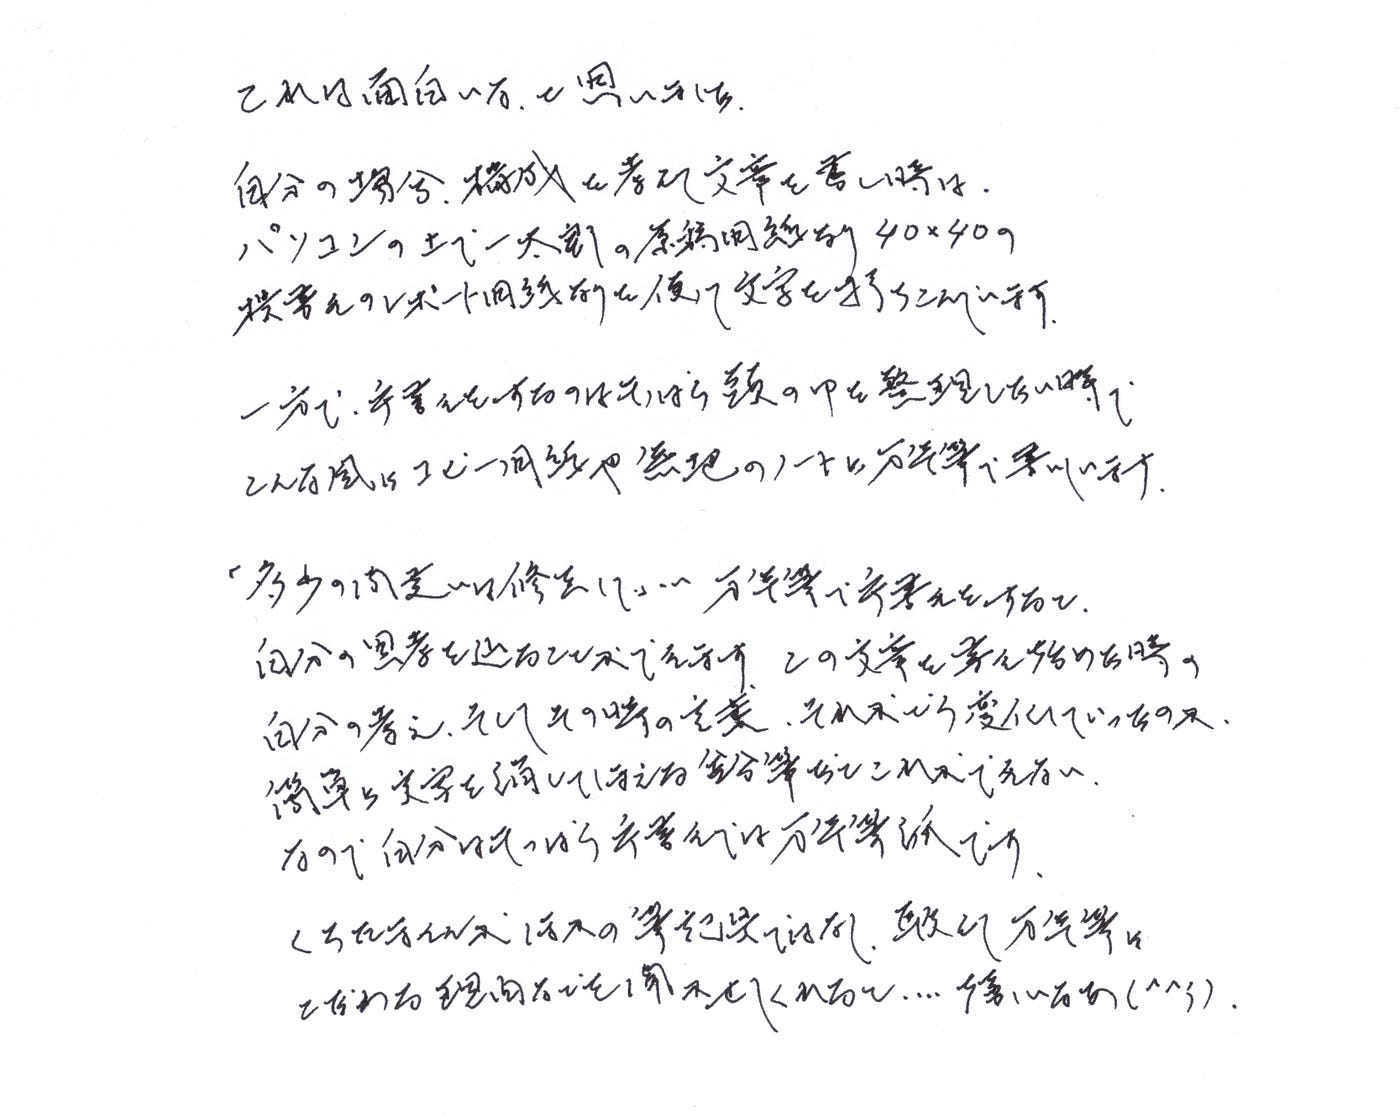 これは面白いな、と思いました。
自分の場合、構成を考えて文章を書く時は、
パソコンの上で一太郎の原稿用紙なり 40×40の
横書きのレポート用紙なりを使って文字を打ちこんでいます。
一方で、手書きをするのはもっぱら頭の中を整理したい時で
こんな風にコピー用紙や無地のノートに万年筆で書いています。
「多少の間違いは修正しない」万年筆で手書きをすると、
自分の思考を辿ることができます。この文章を書き始めた時の
自分の考え、そしてその時の言葉、それがどう変化していったのか、
簡単に文字を消してしまえる鉛筆だとこれができない、
なので自分はもっぱら手書きでは万年筆派です。
くちたけさんが ほかの筆記具ではなく、敢えて万年筆に
こだわる理由などを聞かせてくれると‥‥嬉しいなあ(^^;)。